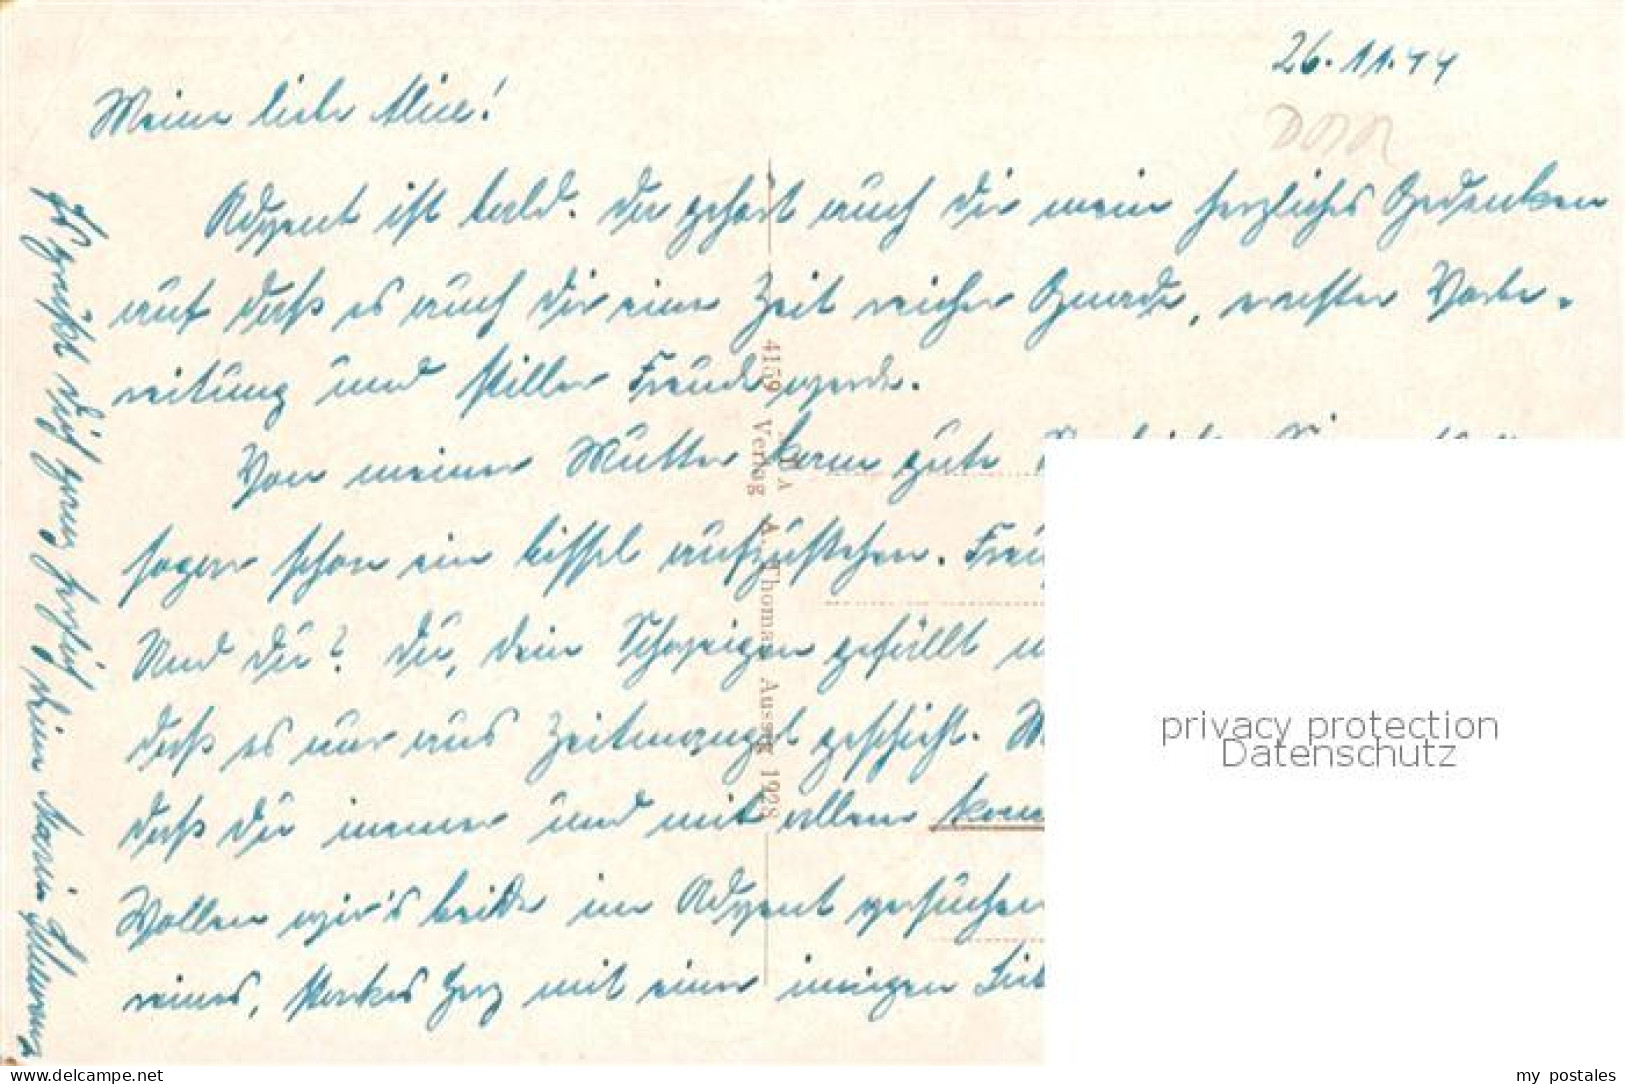 26.11.44
Meine liebe Alice!
Advent ist bald. Da gehört auch Dir mein herzliches Gedenken
auf daß es auch Dir eine Zeit reicher Gnade, ernster Vorbe-
reitung und stiller Freude werde.
Von meiner Mutter kam gute
sogar schon ein bissel aufzustehen.
Und Du? Du, dein Schweigen gefällt
daß es nur aus Zeitmangel geschieht.
daß Du immer und mit allem
Wollen wir's beide im Advent versuchen
reines, starkes Herz mit einer innigen
Es grüßt Dich ganz herzlich Deine Maria
4159 Verlag A. Thomas Aussig 1928
privacy protection
Datenschutz
https://www.delcampe.net
my postales